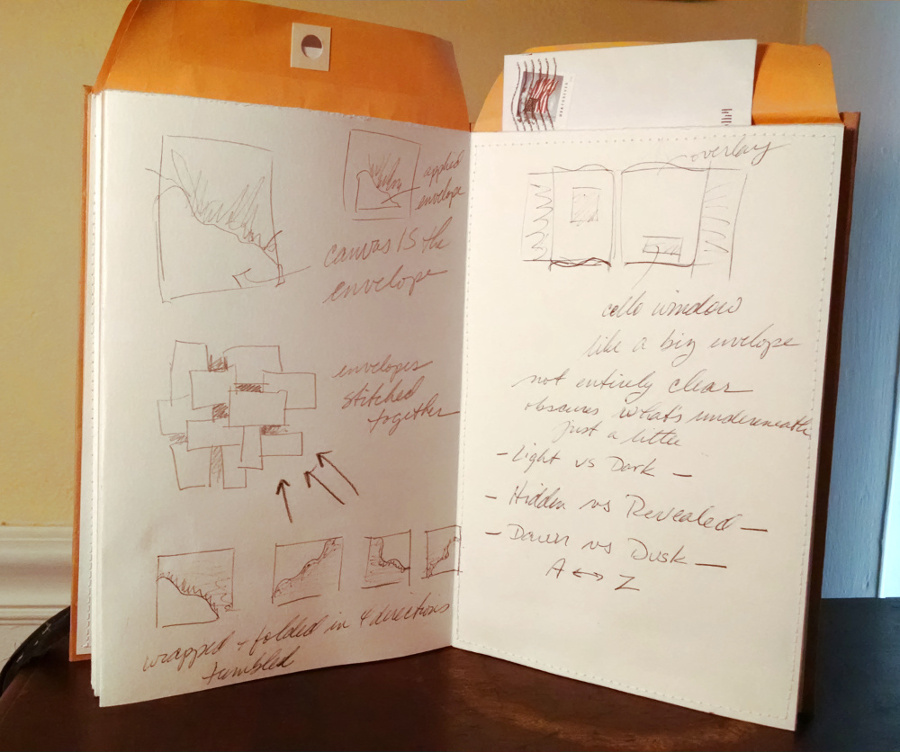 applied
envelope
canvas IS the
envelope
envelopes
stitched
together
wrapped + folded in 4 directions
tumbled
overlay
cello window
like a big envelope
not entirely clear
obscures what's underneath
just a little
- Light vs Dark -
- Hidden vs Revealed -
- Dawn vs Dusk -
A ↔ Z